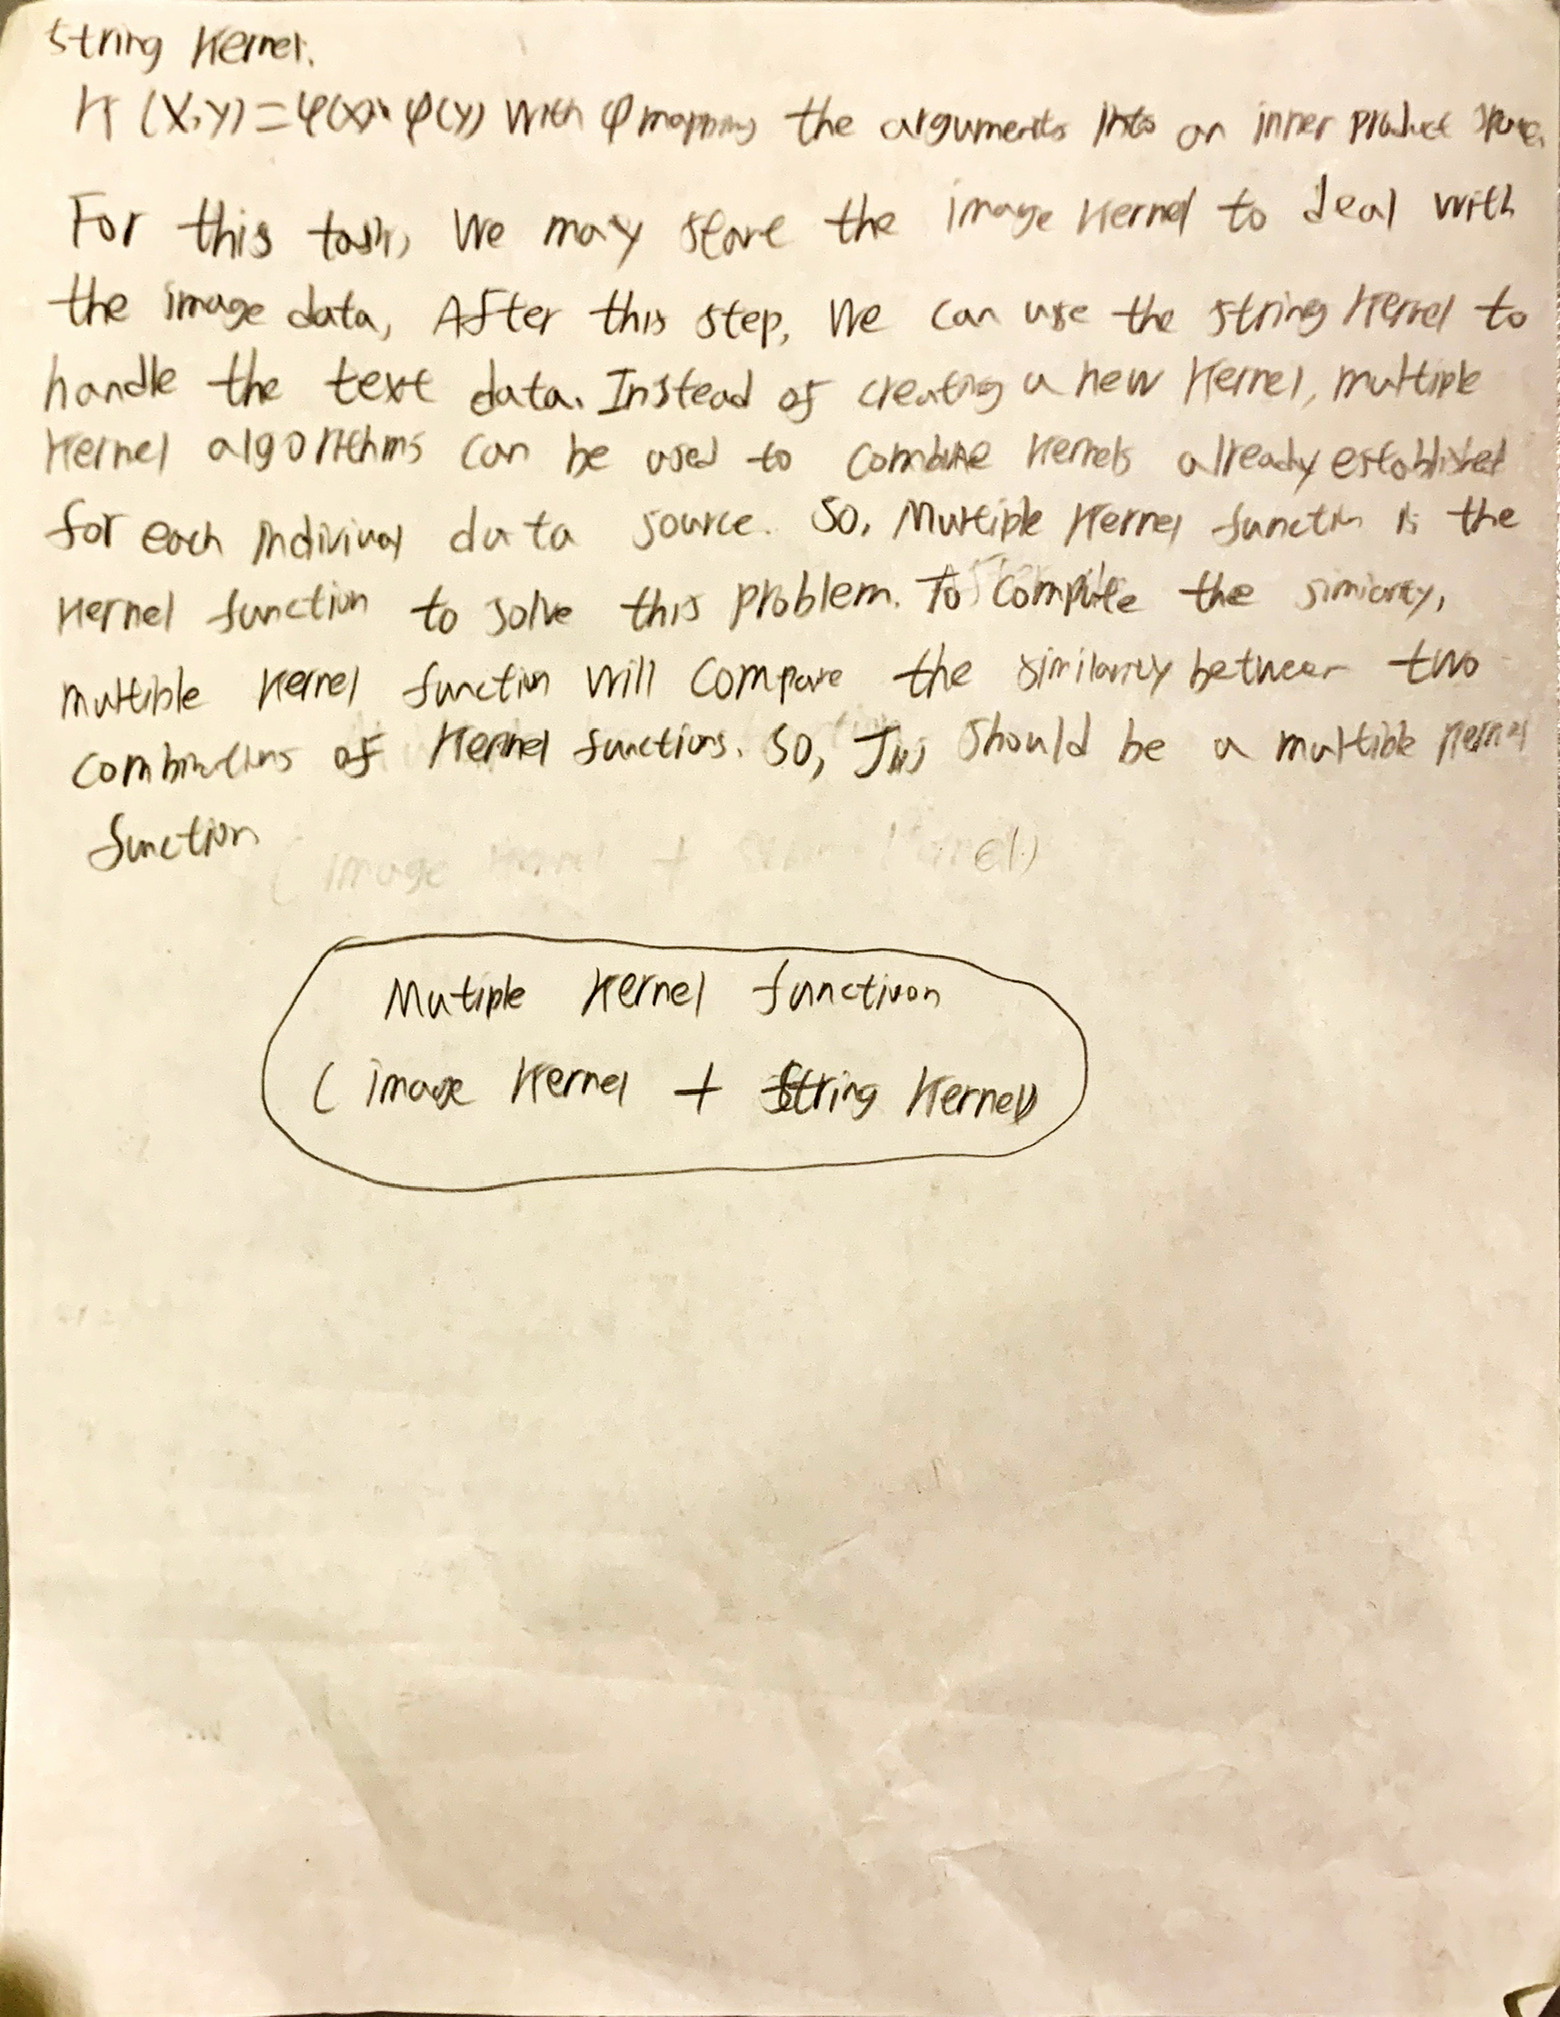 String Kernel.
K (X,Y) = φ(x)· φ(Y) With φ mapping the arguments into an inner product space.
For this task, We may the image Kernel to deal with
the image data, After this step, We can use the string Kernel to
handle the text data. Instead of creating a new Kernel, multiple
Kernel algorithms can be used to combine Kernels already established
for each data source. So, Multiple Kernel function is the
Kernel function to solve this problem. To compute the
multible Kernel function will compare the similarity between two
of Kernel functions. So, should be a multible Kernel
function
( image Kernel + el.)
Mutiple Kernel functiuon
( image Kernel + String Kernel)